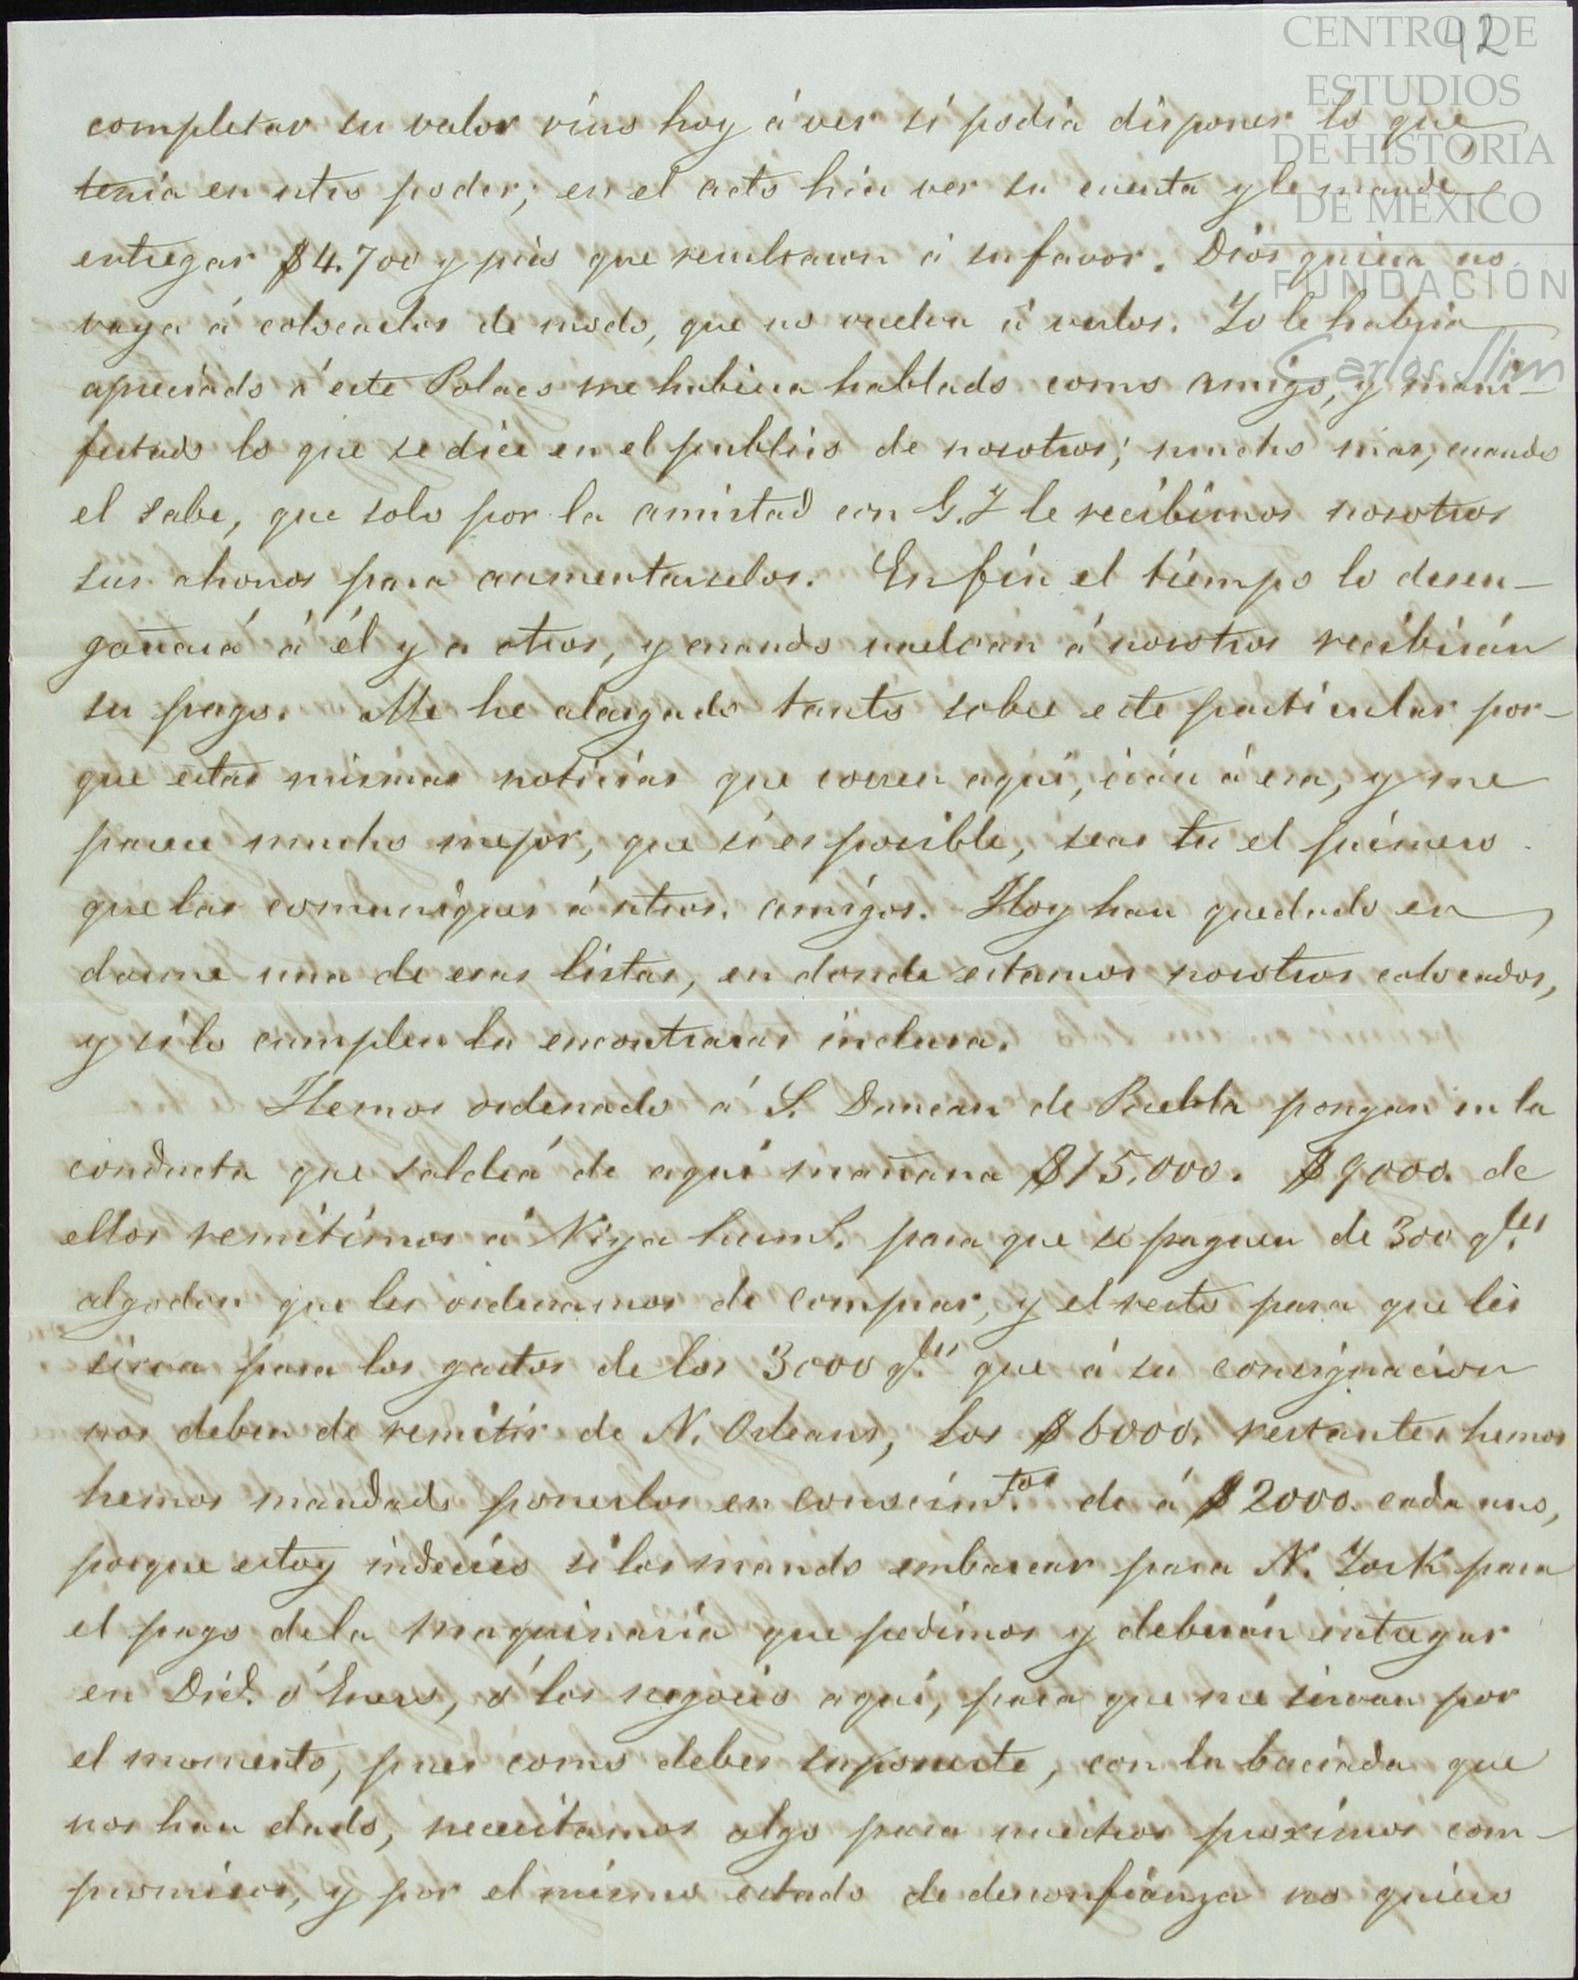 42
CENTRO DE
ESTUDIOS
DE HISTORIA
DE MEXICO
FUNDACIÓN
Carlos Slim
completar su valor vino hoy á ver si podia disponer lo que
tenia en ntro poder; en el acto hice ver su cuenta y le mande
entregar $4.700 y pico que resultaron á su favor. Dios quiera no
vaya á colocarlos de modo, que no vuelva á verlos. Yo le habria
apreciado á este Polaco me hubiera hablado como amigo, y mani-
festado lo que se dice en el publico de nosotros; mucho mas, cuando
el sabe, que solo por la amistad con G.Y le recibimos nosotros
sus ahorros para aumentarselos. En fin el tiempo lo desen-
gañará á él y a otros, y cuando vuelvan á nosotros recibirán
su pago. Me he alargado tanto sobre este particular por-
que estas mismas noticias que corren aqui, irán á esa, y me
parece mucho mejor, que si es posible, seas tu el primero
que las comuniques á ntros. amigos. Hoy han quedado en
darme una de esas listas, en donde estamos nosotros colocados,
y si lo cumplen la encontraras inclusa.
Hemos ordenado á S. Duncan de Puebla pongan en la
conducta que saldrá de aqui mañana $15,000. $9000. de
ellos remitimos á para que se paguen de 300 q.les
algodon que les ordenamos de comprar, y el resto para que les
sirva para los gastos de los 3000 q.les que á su consignacion
nos deben de remitir de N. Orleans, los $6000. restantes hemos
hemos mandado ponerlos en conocim.tos de á $2000. cada uno,
porque estoy indeciso si los mando embarcar para N. York para
el pago dela maquinaria que pedimos y deberán entregar
en Dic. ó Enero, ó los negocio aqui, para que me sirvan por
el momento, pues como debes suponerte, con la baciada que
nos han dado, necesitamos algo para nuestros proximos com-
promisos, y por el mismo estado de desconfianza no quiero